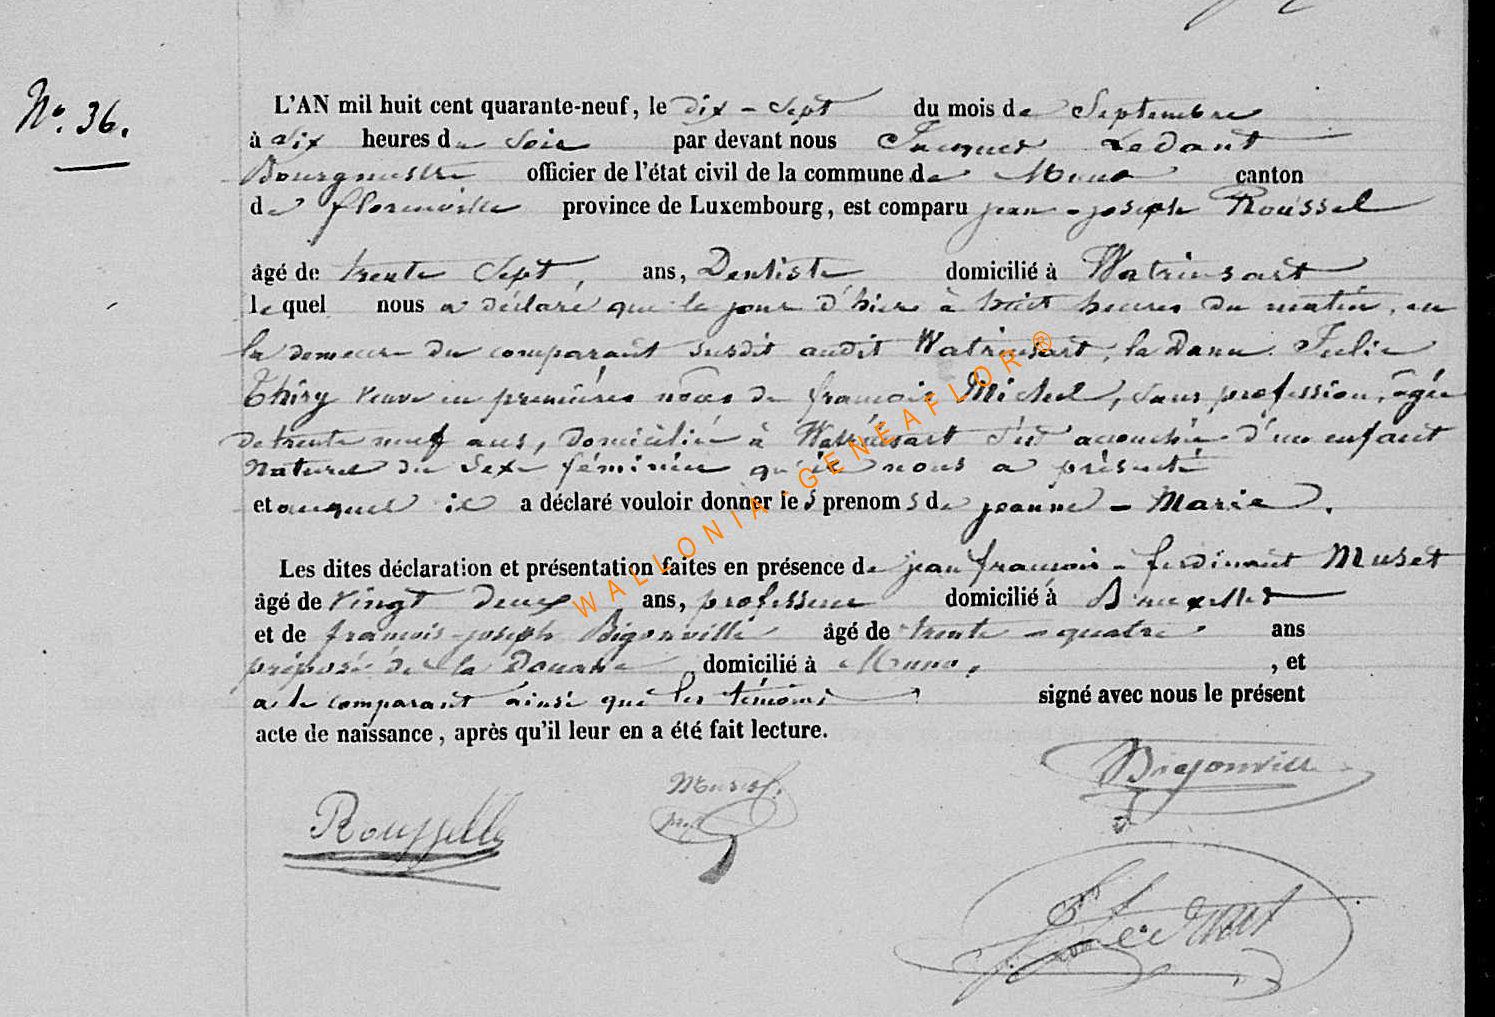 N°. 36.
L'AN mil huit cent quarante-neuf, le dix-sept du mois de Septembre
à dix heures du soir par devant nous Jacques Ledant
Bourgmestre officier de l'état civil de la commune de Muno canton
de florenville province de Luxembourg, est comparu jean-joseph Roussel
âgé de trente sept, ans, Dentiste domicilié à Watrinsart
lequel nous a déclaré que le jour d'hier à huit heures du matin, en
la demeure du comparant susdit audit Watrinsart, la Dame Julie
Thiry veuve en premières noces de françois Michel, sans profession, âgée
de trente neuf ans, domiciliée à Watrinsart s'est accouchée d'un enfant
naturel du sexe féminin qu'il nous a présenté
et auquel il a déclaré vouloir donner les prenoms de jeanne-Marie.
Les dites déclaration et présentation faites en présence de jean françois-ferdinant Muset
âgé de vingt deux ans, professeur domicilié à Bruxelles
et de françois-joseph Bigonville âgé de trente-quatre ans
préposé de la Douane, domicilié à Muno, , et
a le comparant ainsi que les témoins signé avec nous le présent
acte de naissance, après qu'il leur en a été fait lecture.
Bigonville
Muset
Rousselle
Ledant
WALLONIA-GENEAFLOR®